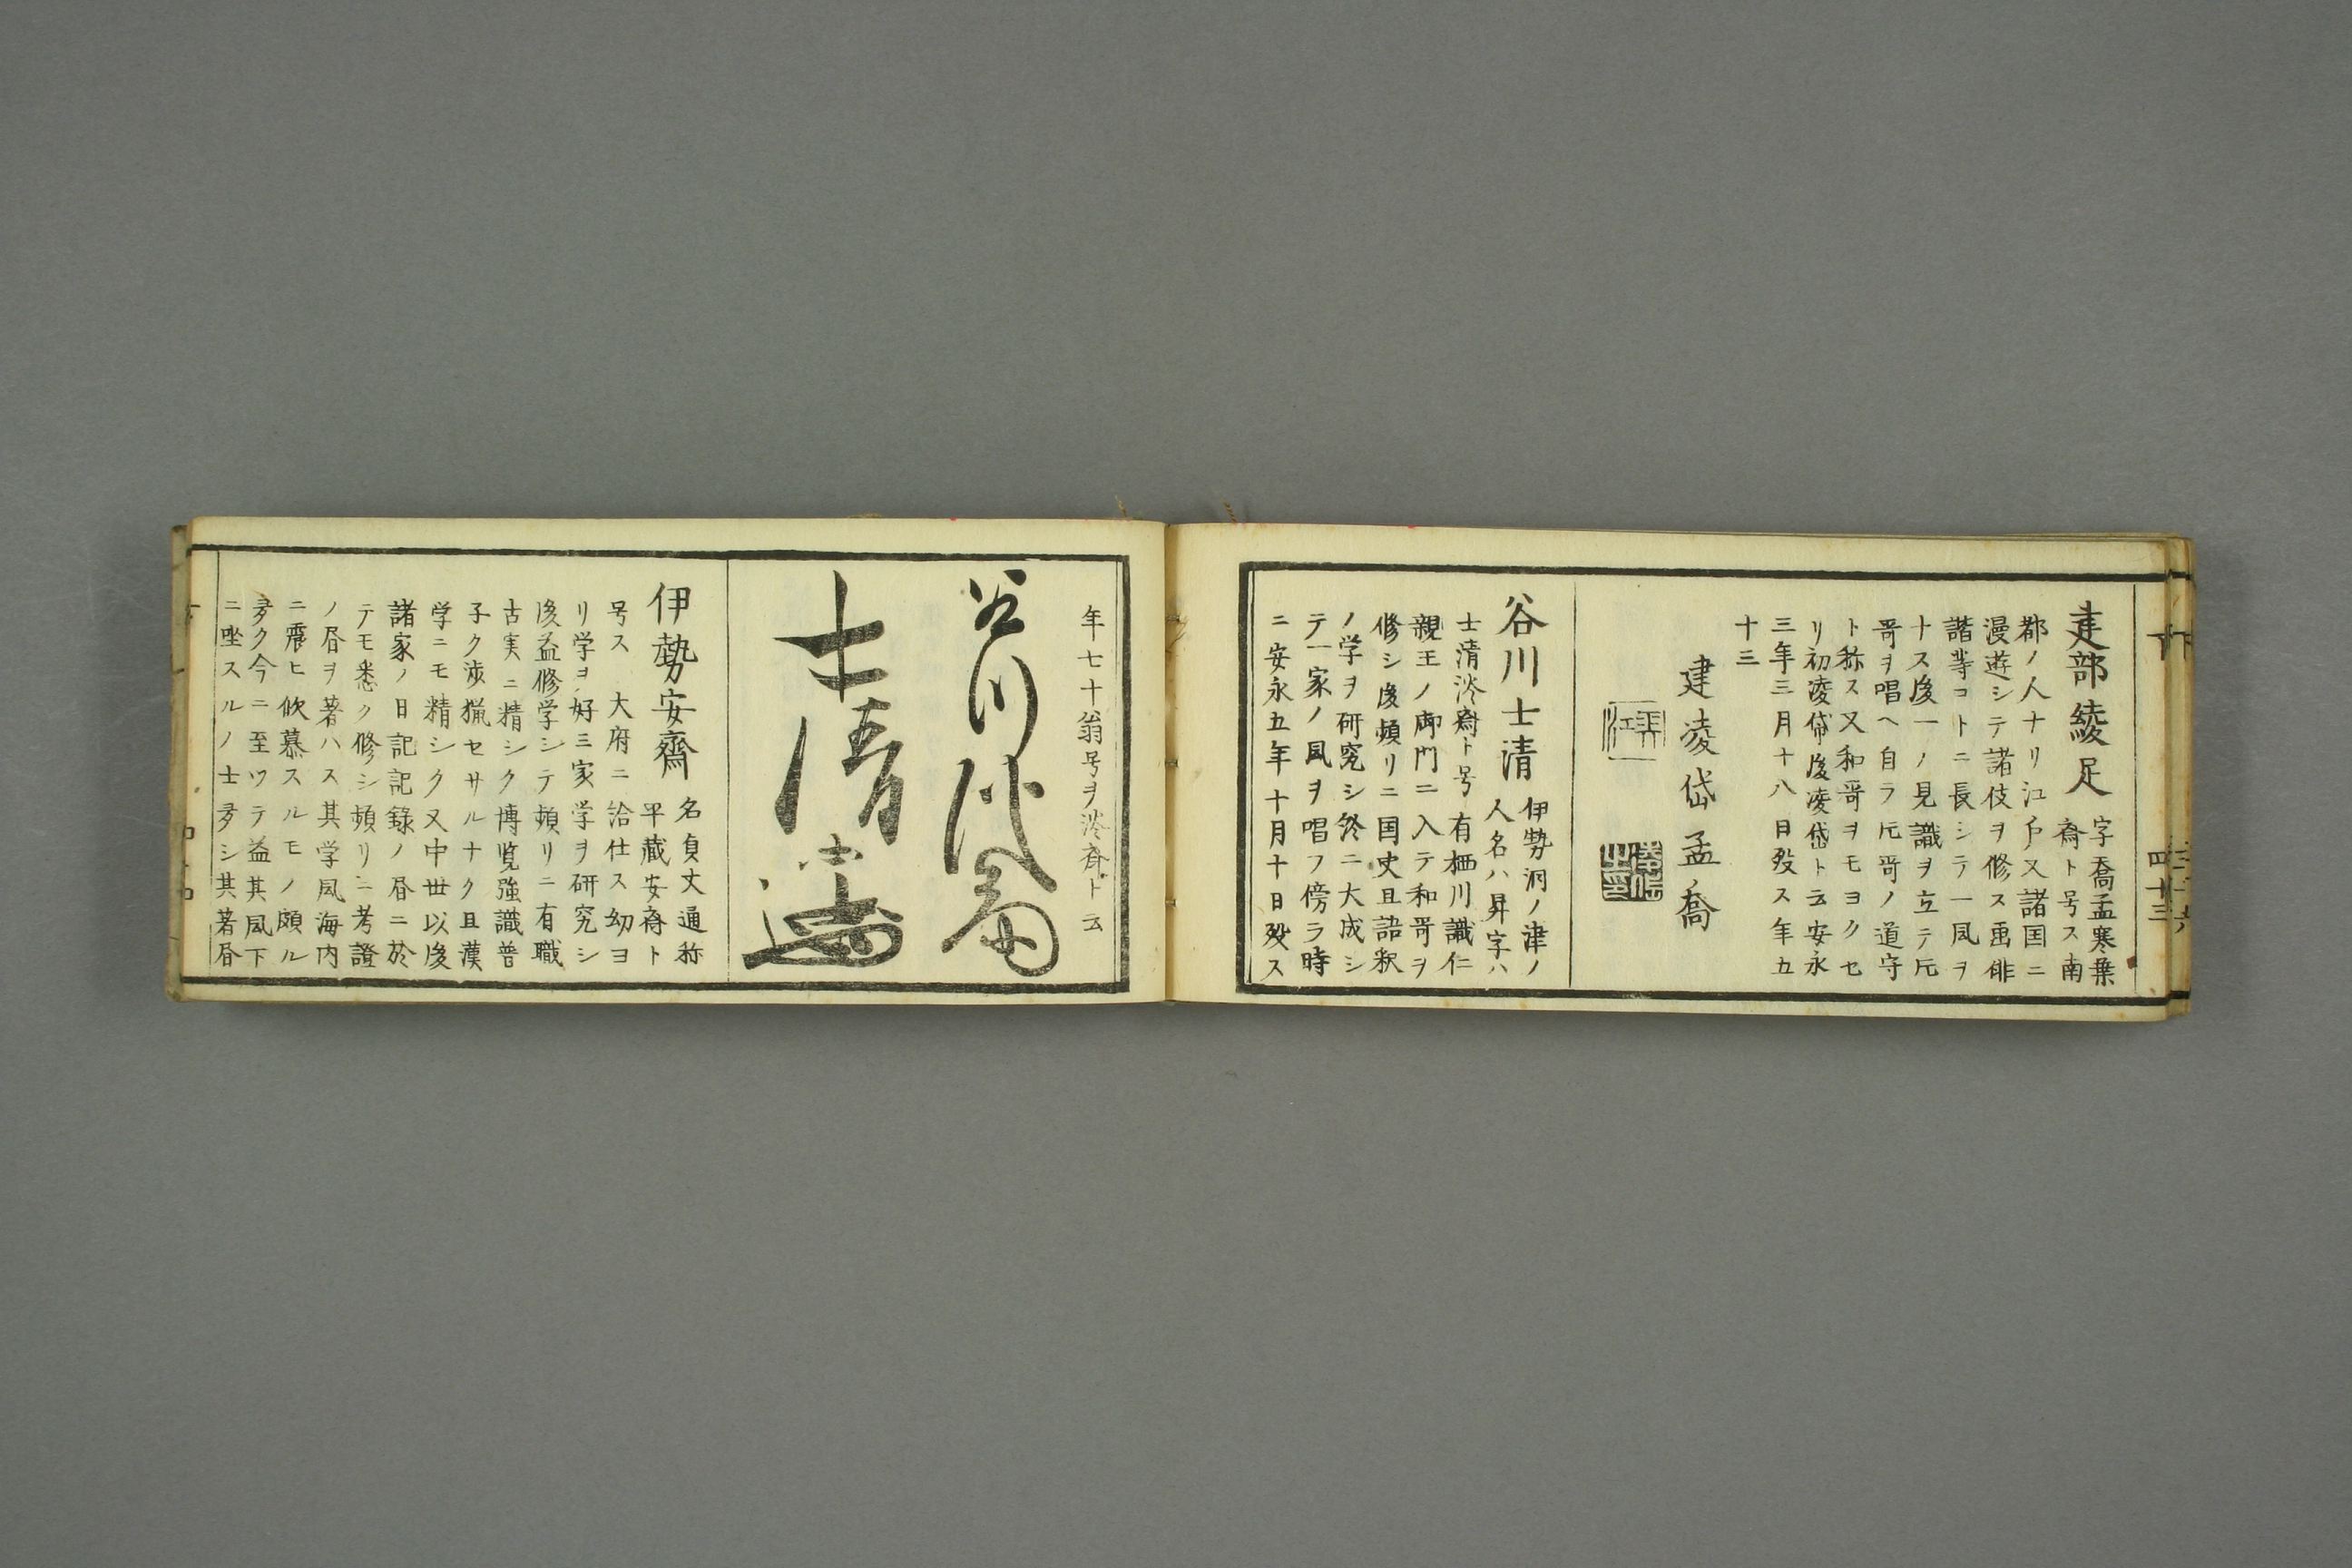 建部綾足 字喬孟寒葉
斎ト号ス南
都ノ人ナリ江戸又諸国ニ
漫遊シテ諸伎ヲ修ス画俳
諧等コトニ長シテ一風ヲ
ナス後一ノ見識ヲ立テ片
哥ヲ唱ヘ自ラ片哥ノ道守
ト称ス又和哥ヲモヨクセ
リ初凌岱後凌岱ト云安永
三年三月十八日歿ス年五
十三
建凌岱孟喬
谷川士清 伊勢洞ノ津ノ
人名ハ昇字ハ
士清淡齋ト号有栖川識仁
親王ノ御門ニ入テ和哥ヲ
修シ後頻リニ国史且語釈
ノ学ヲ研究シ終ニ大成シ
テ一家ノ風ヲ唱フ傍ラ時
ニ安永五年十月十日歿ス
下
四十三
年七十翁号ヲ淡斎ト云
谷川
士清
伊勢安齋 名貞丈通称
平蔵安斎ト
号ス 大府ニ給仕ス幼ヨ
リ学ヲ好ミ家学ヲ研究シ
後益修学シテ頻リニ有職
古実ニ精シク博覧強識普
子ク渉猟セサルナク且漢
学ニモ精シク又中世以後
諸家ノ日記記録ノ昏ニ於
テモ悉ク修シ頻リニ考證
ノ昏ヲ著ハス其学風海内
ニ震ヒ欽慕スルモノ頗ル
多ク今ニ至ツテ益其風下
ニ坐スルノ士多シ其著昏